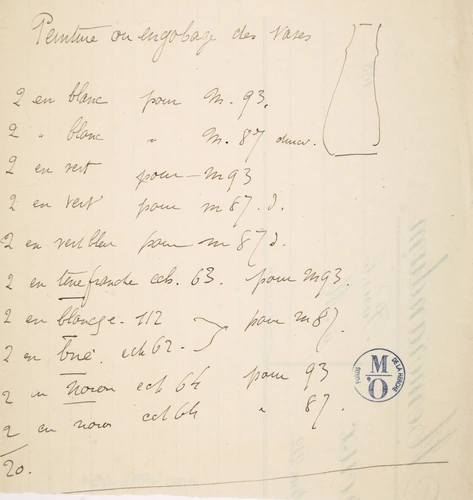 Peinture ou engobage des vases
2 en blanc pour m. 93.
2 " blanc " m. 87
2 en vert pour m 93
2 en vert pour m 87. d.
2 en vert bleu pour m 87 d.
2 en terre franche ech. 63. pour m 93.
2 en 112 pour m 87.
2 en ech 62.
2 en ech 64 pour 93
2 en ech 64 " 87.
20.
MO
DE LA MARCHE